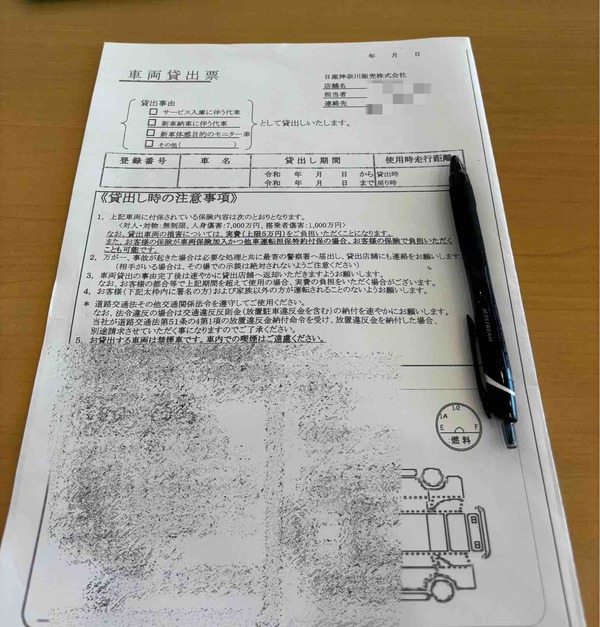 年 月 日
車両貸出票
日産神奈川販売株式会社
店舗名
担当者
連絡先
貸出事由
□ サービス入庫に伴う代車
□ 新車納車に伴う代車
□ 新車体感目的のモニター車
□ その他( )
として貸出しいたします。
登録番号 車名 貸出し期間 使用時走行距離
令和 年 月 日 から 貸出時
令和 年 月 日 まで 戻り時
《貸出し時の注意事項》
1. 上記車両に付保されている保険内容は次のとおりとなります。
<対人・対物:無制限、人身傷害:7,000万円、搭乗者傷害:1,000万円>
なお、貸出車両の損害については、実費(上限5万円)をご負担いただくことになります。
また、お客様の保険が車両保険加入かつ他車運転担保特約付保の場合、お客様の保険で負担いただく
ことも可能です。
2. 万が一、事故が起きた場合は必要な処理と共に最寄の警察署へ届出し、貸出店舗にも連絡をお願いします
(相手がいる場合は、その場での示談は絶対されないようご注意ください)
3. 車両貸出の事由完了後は速やかに貸出店舗へ返却いただきますようお願いします。
なお、お客様の都合等で上記期間を超えて使用の場合、実費の負担をいただく場合がございます。
4. お客様(下記太枠内に署名の方)および家族以外の方が運転されることのないようお願いします。
* 道路交通法その他交通関係法令を遵守してご使用ください。
なお、法令違反の場合は交通違反反則金(放置駐車違反金を含む)の納付を速やかにお願いします。
当社が道路交通法第51条の4第1項の放置違反金納付命令を受け、放置違反金を納付した場合、
別途請求させていただく事になりますのでご了承ください。
5. お貸出する車両は禁煙車です。車内での喫煙はご遠慮ください。
1/2
1/4
E F
燃料
JETSTREAM